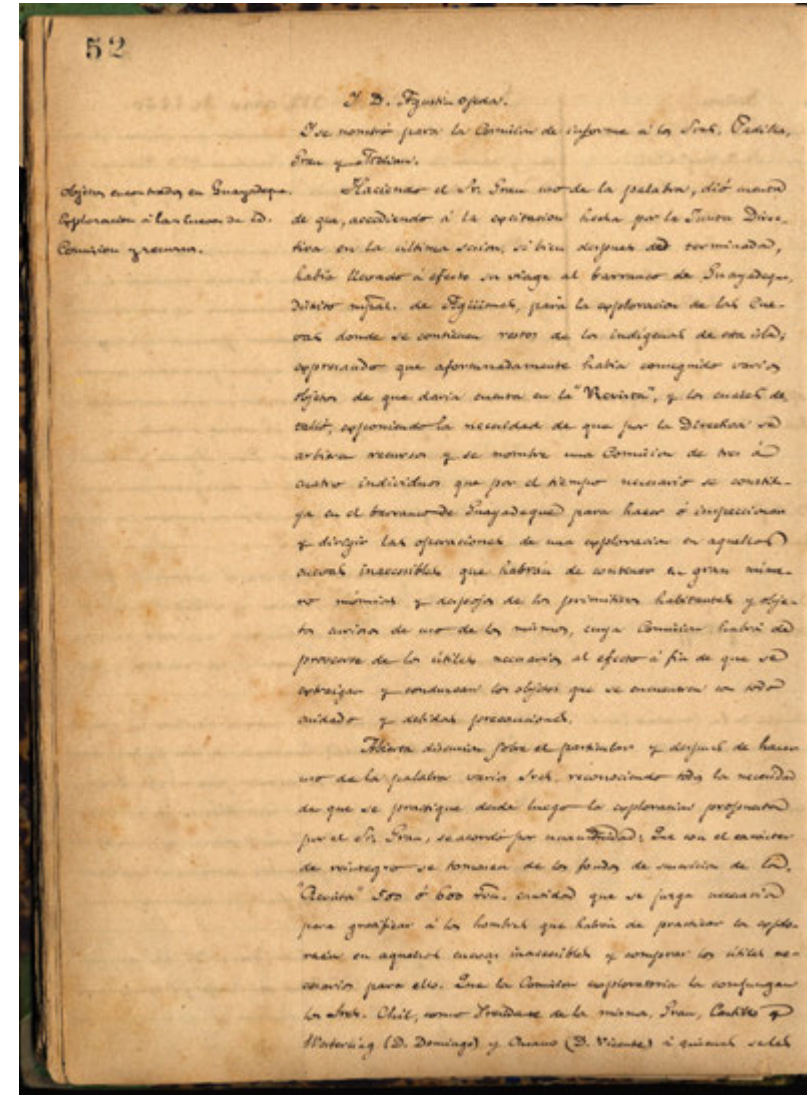 52
Y D. Agustin Ojeda.
Y se nombró para la Comision de informe á los Sres. Padilla,
Grau y
Objetos encontrados en Guayadeque.
Exploracion á las cuevas de id.
Comision y recursos.
Haciendo el Sr. Grau uso de la palabra, dió cuenta
de que, accediendo á la excitacion hecha por la Junta Direc-
tiva en la última sesion, si bien despues de terminada,
habia llevado á efecto su viage al barranco de Guayadeque,
distrito mpal. de Agüimes, para la exploracion de las Cue-
vas donde se contienen restos de los indígenas de esta isla;
expresando que afortunadamente habia conseguido varios
objetos de que daria cuenta en la "Revista", y los cuales de-
talló, exponiendo la necesidad de que por la Directiva se
arbitren recursos y se nombre una Comision de tres á
cuatro individuos que por el tiempo necesario se constitu-
ya en el barranco de Guayadeque para hacer ó inspeccionar
y dirigir las operaciones de una exploracion en aquellas
cuevas inaccesibles que habrán de contener en gran núme-
ro momias y despojos de los primitivos habitantes y obje-
tos curiosos de uso de los mismos, cuya Comision habrá de
proveerse de los útiles necesarios al efecto á fin de que se
extraigan y conduzcan los objetos que se encuentren con todo
cuidado y debidas precauciones.
Abierta discusion sobre el particular y despues de hacer
uso de la palabra varios Sres. reconociendo todos la necesidad
de que se practique desde luego la exploracion propuesta
por el Sr. Grau, se acordó por unanimidad: Que con el carácter
de reintegro se tomasen de los fondos de suscricion de la
"Revista" 500 ó 600 rvn. cantidad que se juzga necesaria
para gratificar á los hombres que habrán de practicar la explo-
racion en aquellas cuevas inaccesibles y comprar los útiles ne-
cesarios para ello. Que la Comision exploratoria la compongan
los Sres. Chil, como Presidente de la misma, Grau, Castillo y
Westerling (D. Domingo) y Chano (D. Vicente) á quienes se les